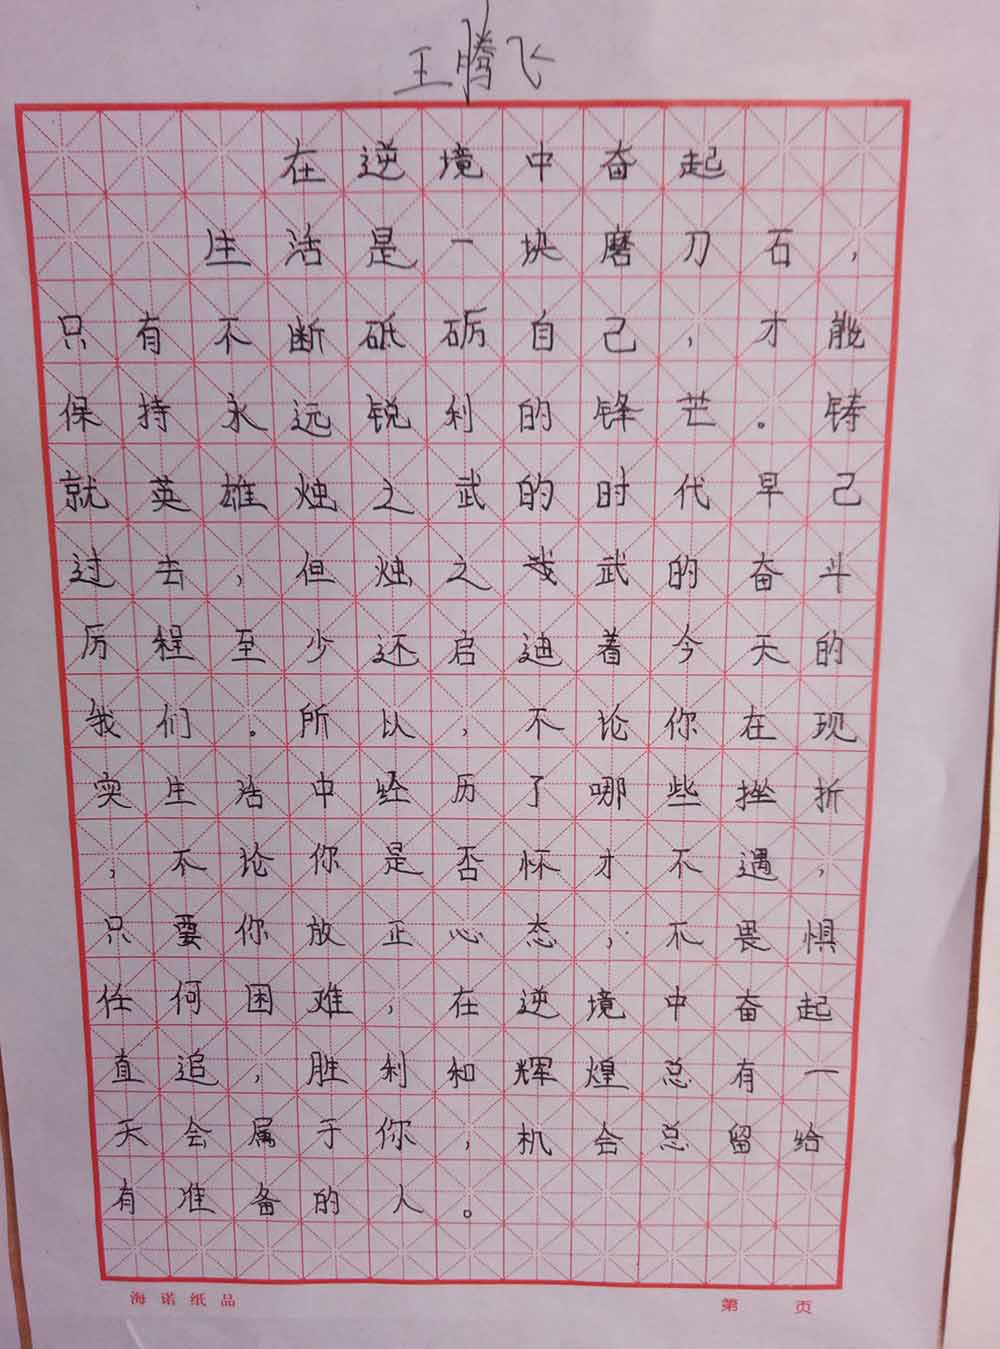 王腾飞
在逆境中奋起
生活是一块磨刀石，
只有不断砥砺自己，才能
保持永远锐利的锋芒。铸
就英雄烛之武的时代早已
过去，但烛之武的奋斗
厉程至少还启迪着今天的
我们。所以，不论你在现
实生活中经历了哪些挫折
，不论你是否怀才不遇，
只要你放正心态，不畏惧
任何困难，在逆境中奋起
直追，胜利和辉煌总有一
天会属于你，机会总留给
有准备的人。
海诺纸品
第 页